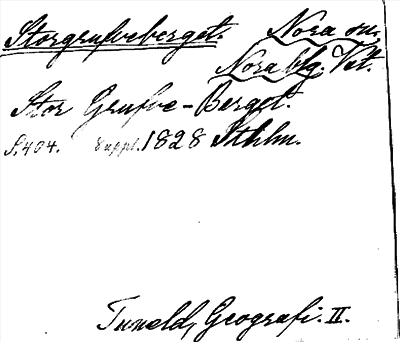 Storgrufveberget. Nora sn.
Nora blg. Vstl.
Stor Grufve-Berget.
S. 404. Suppl. 1828 Sthlm.
Tuneld, Geografi. II.